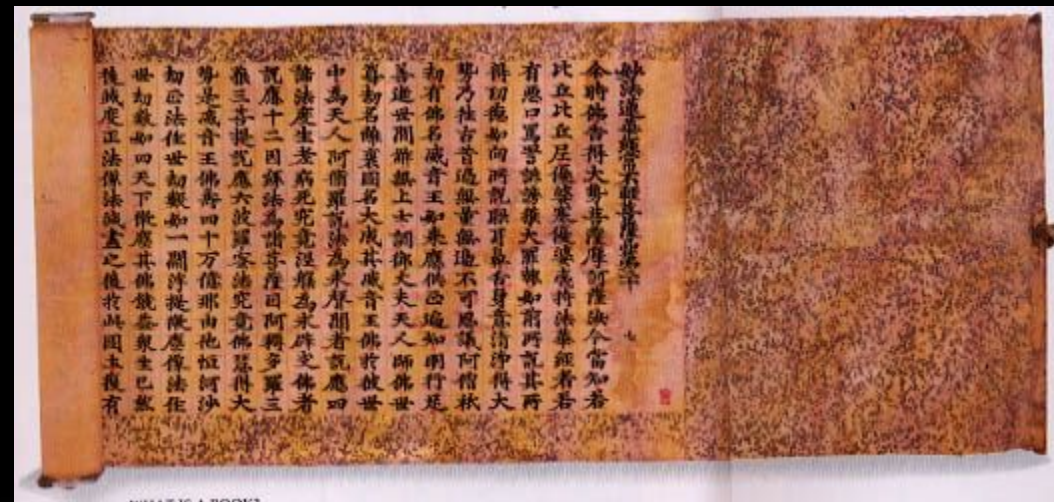 妙法蓮華經常不輕菩薩品第二十 七
尒時佛告得大勢菩薩摩訶薩汝今當知若
比丘比丘尼優婆塞優婆夷持法華經者若
有惡口罵詈誹謗獲大罪報如前所說其所
得功德如向所說眼耳鼻舌身意清淨得大
勢乃往古昔過無量無邊不可思議阿僧祇
劫有佛名威音王如來應供正遍知明行足
善逝世間解無上士調御丈夫天人師佛世
尊劫名離衰國名大成其威音王佛於彼世
中為天人阿脩羅說法為求聲聞者說應四
諦法度生老病死究竟涅槃為求辟支佛者
說應十二因緣法為諸菩薩因阿耨多羅三
藐三菩提說應六波羅蜜法究竟佛慧得大
勢是威音王佛壽四十万億那由他恒河沙
劫正法住世劫數如一閻浮提微塵像法住
世劫數如四天下微塵其佛饒益衆生已然
後滅度正法像法滅盡之後於此國土復有
WHAT IS A BOOK?